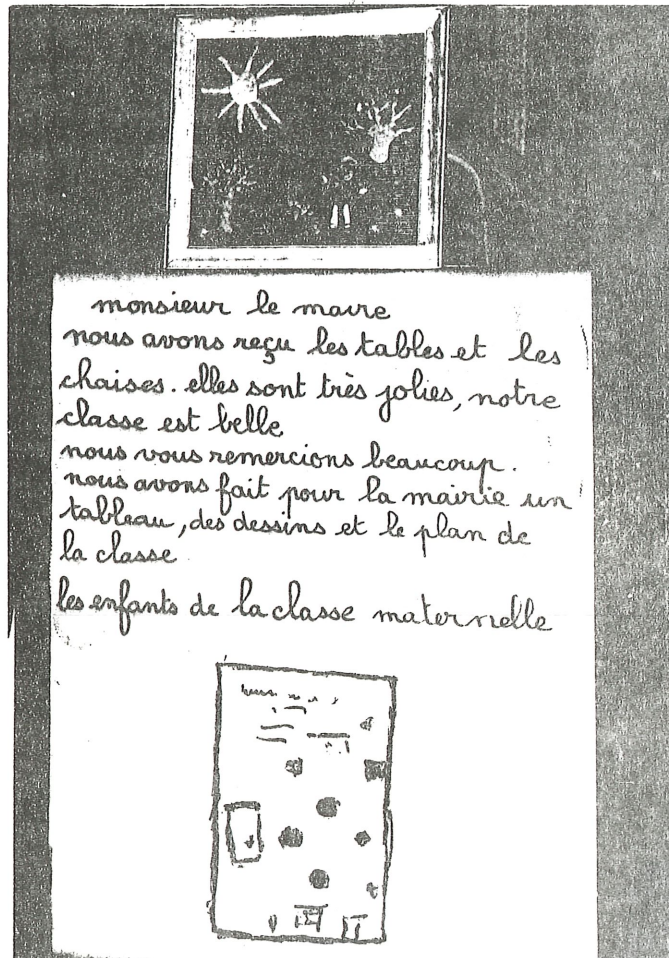 monsieur le maire
nous avons reçu les tables et les
chaises. elles sont très jolies, notre
classe est belle
nous vous remercions beaucoup.
nous avons fait pour la mairie un
tableau, des dessins et le plan de
la classe
les enfants de la classe maternelle